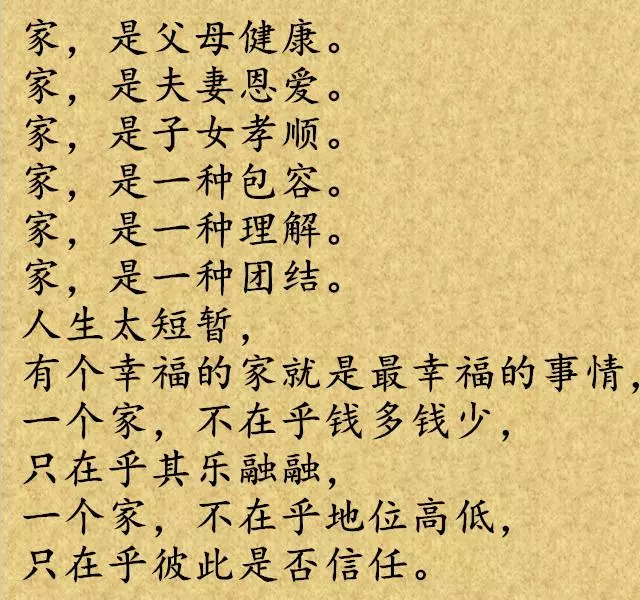 家，是父母健康。
家，是夫妻恩爱。
家，是子女孝顺。
家，是一种包容。
家，是一种理解。
家，是一种团结。
人生太短暂，
有个幸福的家就是最幸福的事情，
一个家，不在乎钱多钱少，
只在乎其乐融融，
一个家，不在乎地位高低，
只在乎彼此是否信任。